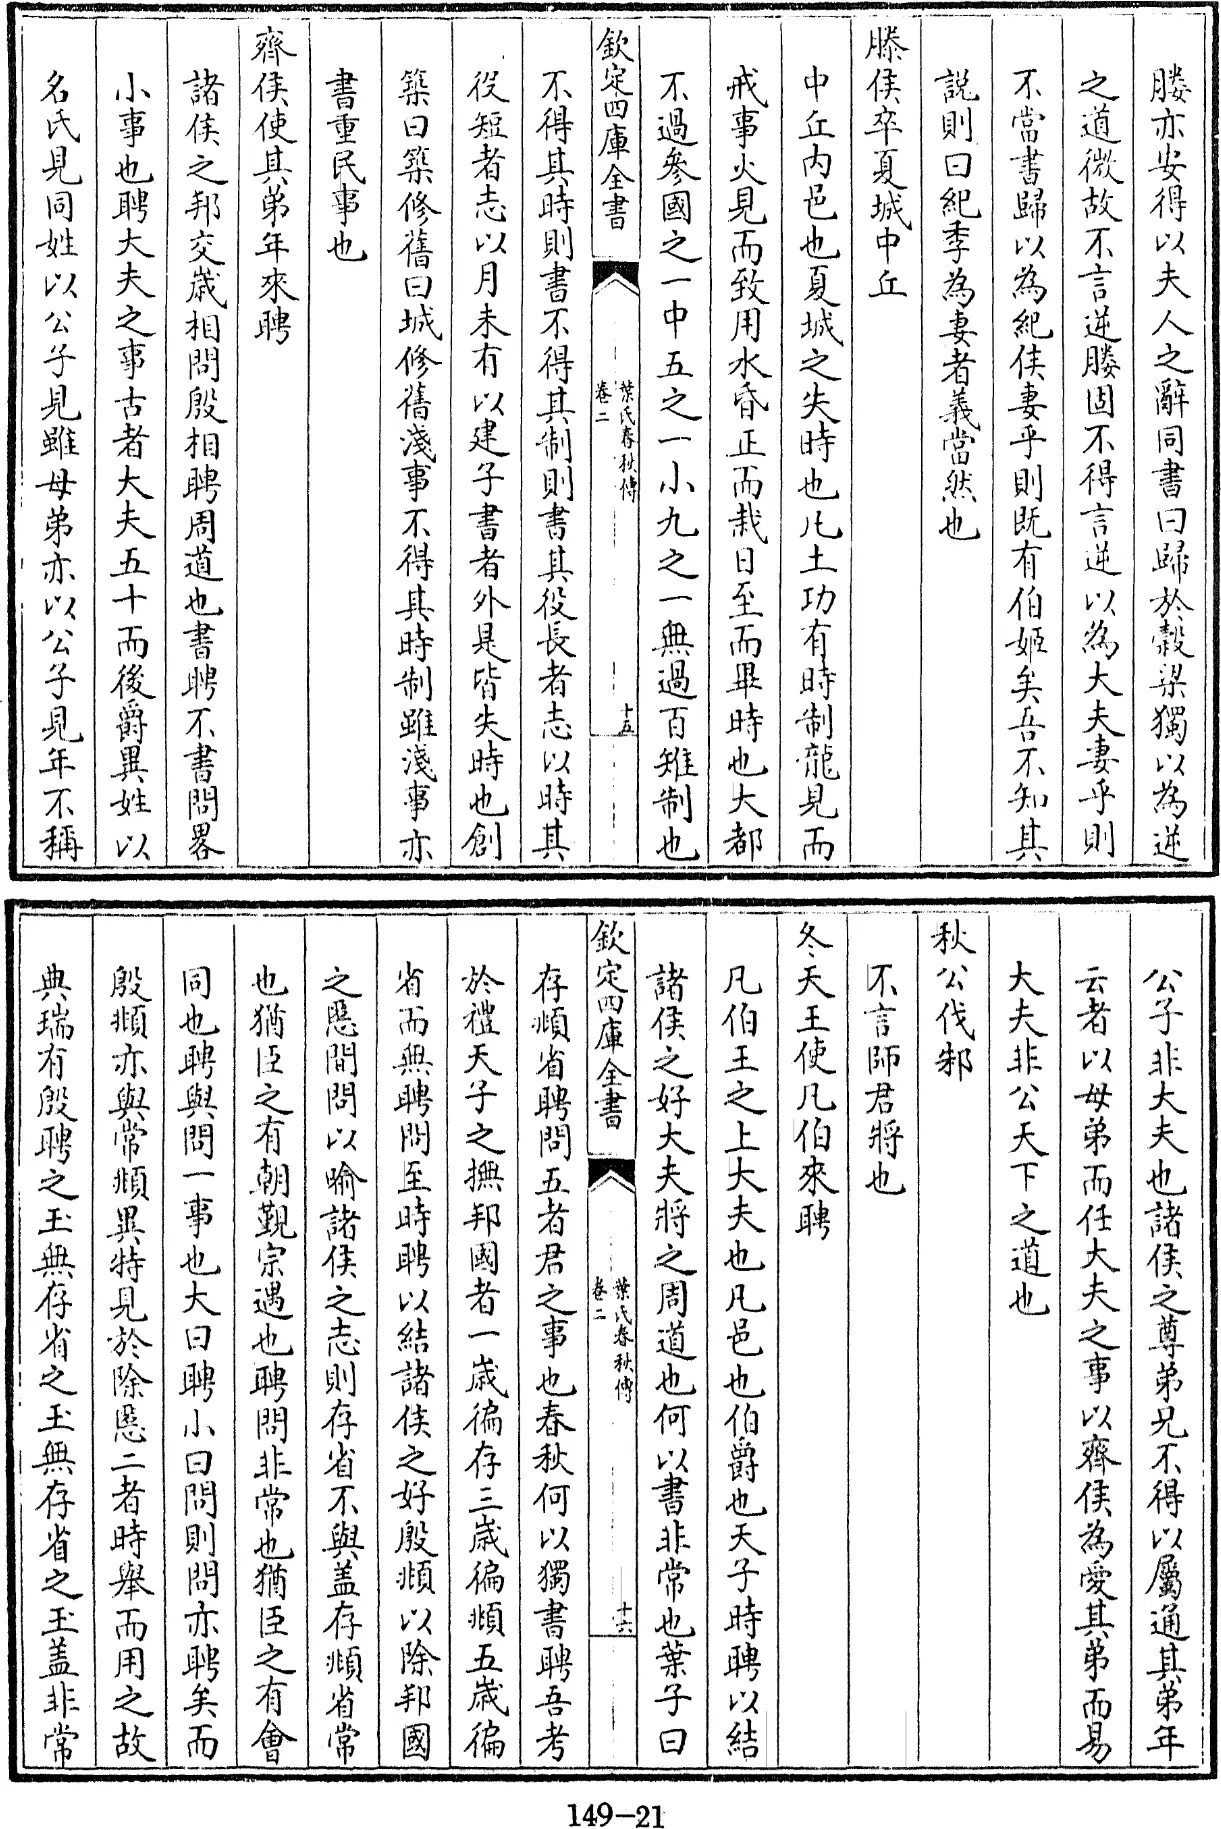 媵亦安得以夫人之辭同書曰歸於糓梁獨以為逆
之道微故不言逆媵固不得言逆以為大夫妻乎則
不當書歸以為紀侯妻乎則既有伯姬矣吾不知其
説則曰紀季為妻者義當然也
滕侯卒夏城中丘
中丘内邑也夏城之失時也凡土功有時制龍見而
戒事火見而致用水昏正而栽日至而畢時也大都
不過參國之一中五之一小九之一無過百雉制也
欽定四庫全書
葉氏春秋傳
卷二
十五
不得其時則書不得其制則書其役長者志以時其
役短者志以月未有以建子書者外是皆失時也創
築曰築修舊曰城修舊淺事不得其時制雖淺事亦
書重民事也
齊侯使其弟年來聘
諸侯之邦交歲相問殷相聘周道也書聘不書問畧
小事也聘大夫之事古者大夫五十而後爵異姓以
名氏見同姓以公子見雖母弟亦以公子見年不稱
公子非大夫也諸侯之尊弟兄不得以屬通其弟年
云者以母弟而任大夫之事以齊侯為愛其弟而易
大夫非公天下之道也
秋公伐邾
不言師君將也
冬天王使凡伯來聘
凡伯王之上大夫也凡邑也伯爵也天子時聘以結
諸侯之好大夫將之周道也何以書非常也葉子曰
欽定四庫全書
葉氏春秋傳
卷二
十六
存頫省聘問五者君之事也春秋何以獨書聘吾考
於禮天子之撫邦國者一歲徧存三歲徧頫五歲徧
省而無聘問至時聘以結諸侯之好殷頫以除邦國
之慝間問以喻諸侯之志則存省不與盖存頫省常
也猶臣之有朝覲宗遇也聘問非常也猶臣之有會
同也聘與問一事也大曰聘小曰問則問亦聘矣而
殷頫亦與常頫異特見於除慝二者時舉而用之故
典瑞有殷聘之玉無存省之玉無存省之玉盖非常
149-21